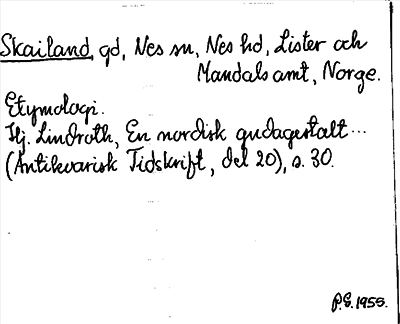 Skailand, gd, Nes sn, Nes hd, Lister och
Mandals amt, Norge.
Etymologi.
Hj. Lindroth, En nordisk gudagestalt...
(Antikvarisk Tidskrift, del 20), s. 30.
P.G. 1955.